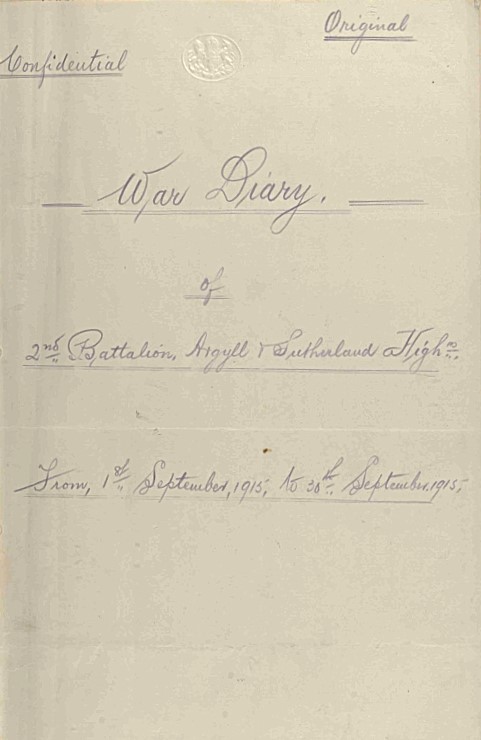 Original
Confidential
War Diary.
of
2nd Battalion, Argyll & Sutherland Highrs.
From, 1st September, 1915, to 30th September. 1915,